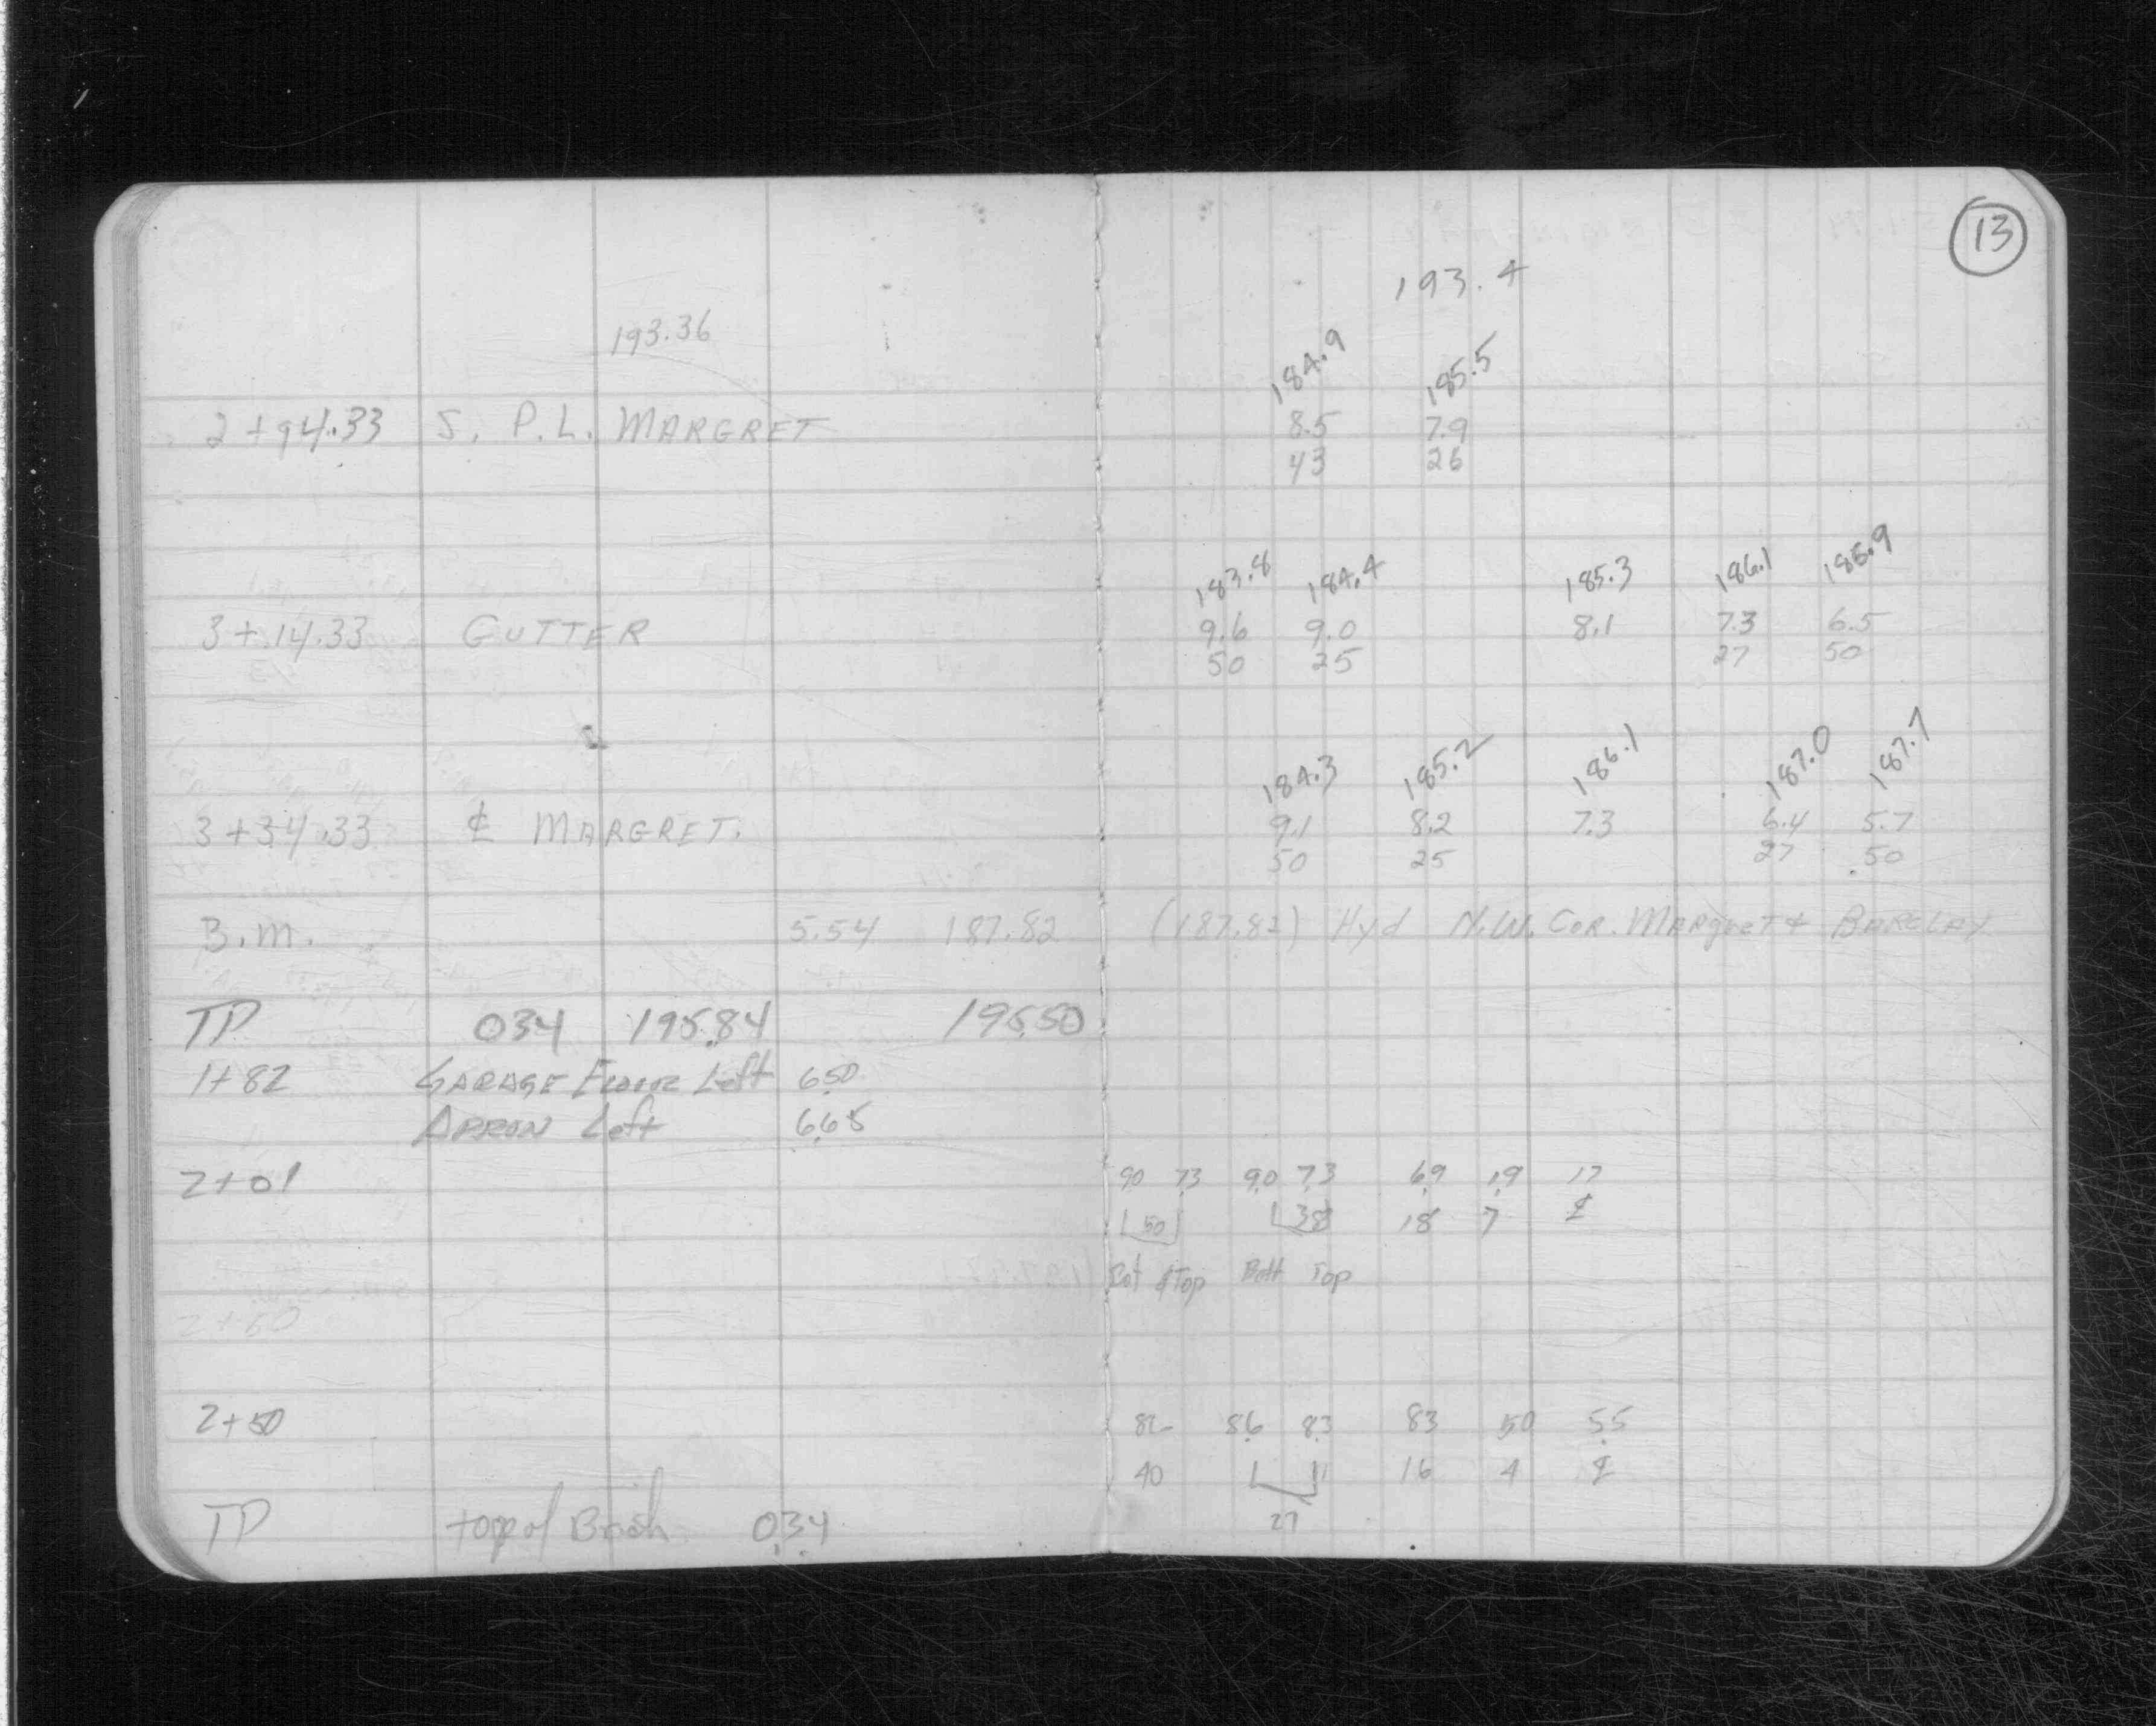 13
193.4
193.36
184.9 185.5
2+94.33 S. P.L. MARGRET 8.5 7.9
43 26
183.8 184.4 185.3 186.1 185.9
3+14.33 GUTTER 9.6 9.0 8.1 7.3 6.5
50 25 27 50
184.3 185.2 186.1 187.0 187.7
3+34.33 ℄ MARGRET. 9.1 8.2 7.3 6.4 5.7
50 25 27 50
B.M. 5.54 187.82 (187.82) Hyd N.W. COR. MARgreT & BARCLAY
TP 034 195.84 195.50
1+82 GARAGE FLOOR Left 6.50
APRON Left 6.65
2+01 90 7.3 9.0 7.3 6.9 1.9 17
50 38 18 7 ℄
Bot & Top Bott Top
2+50
2+50 82 8.6 8.3 83 5.0 5.5
40 16 4 ℄
27
TP top of 0.34